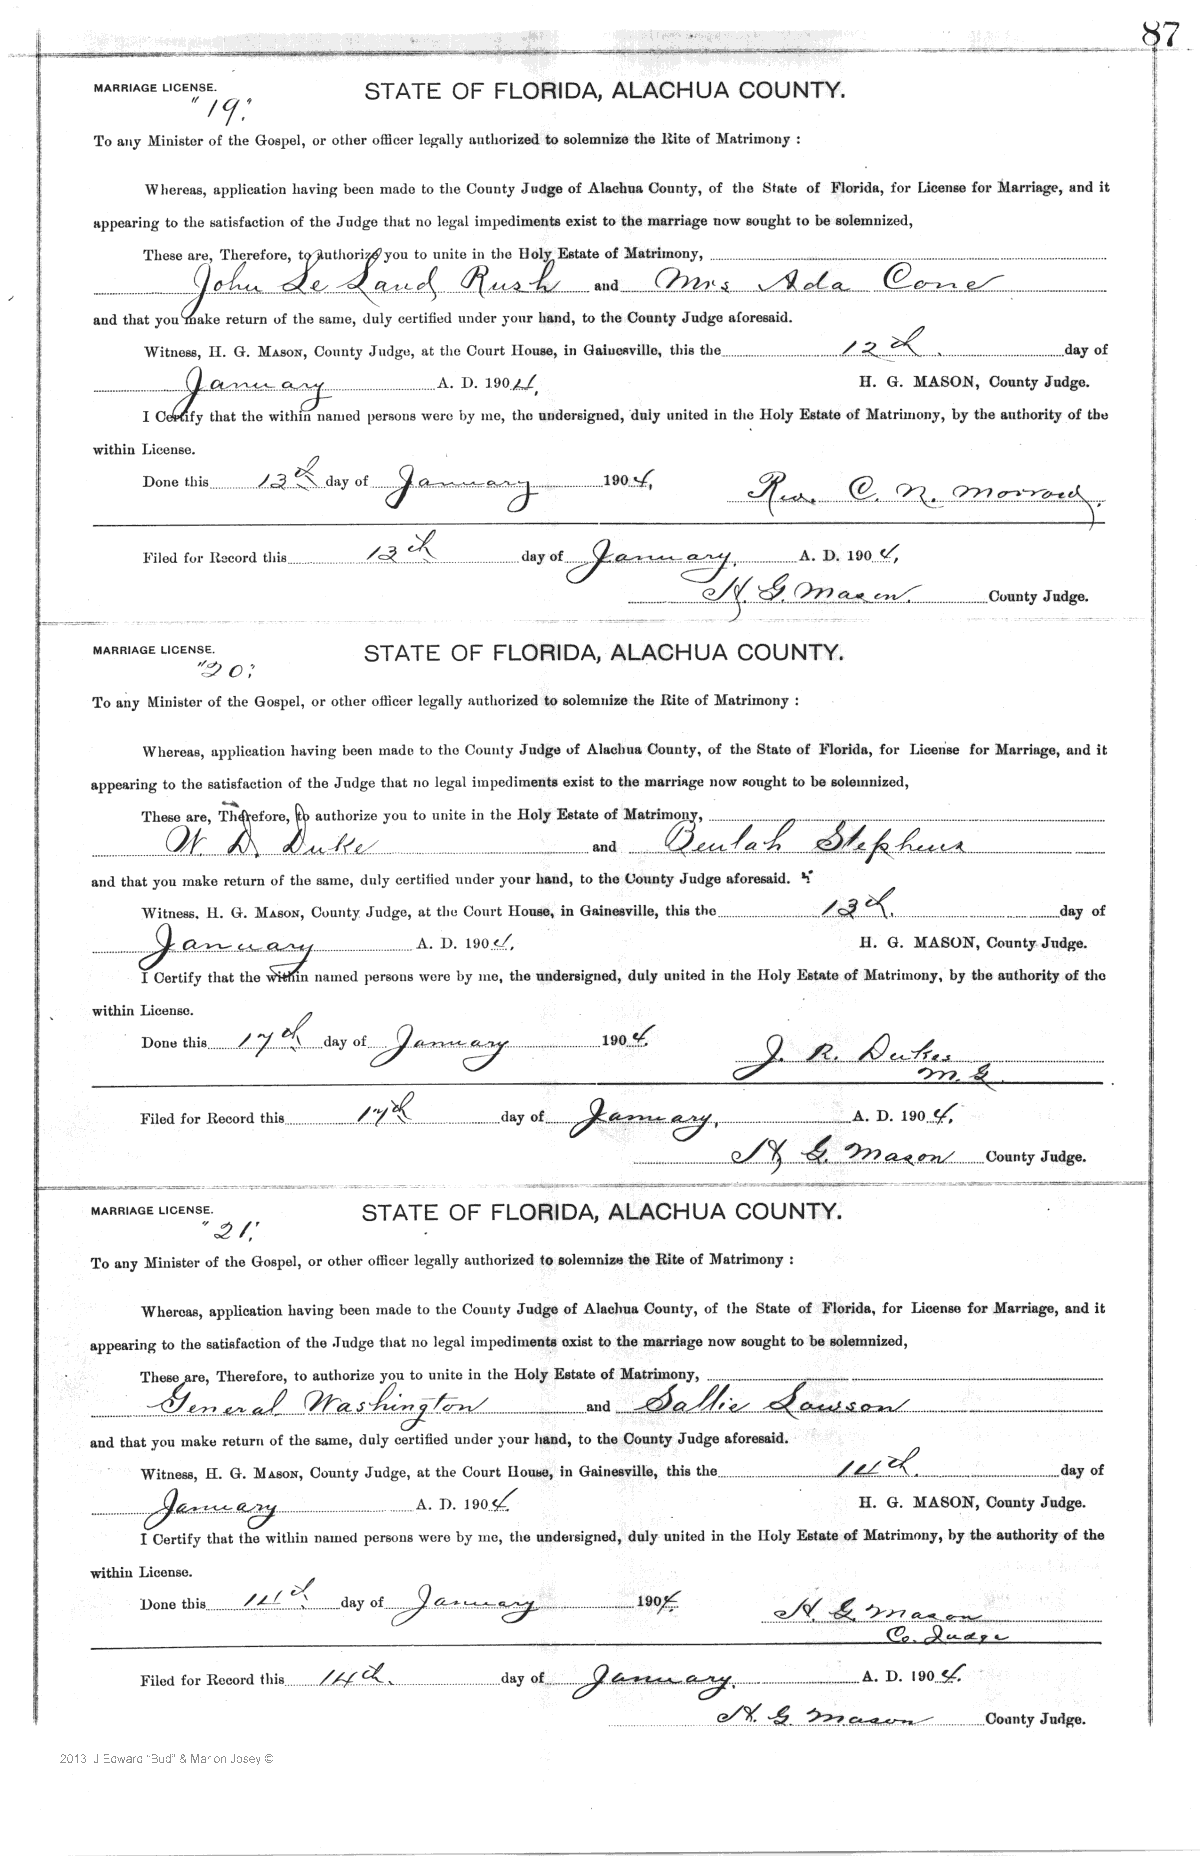 87
MARRIAGE LICENSE.
STATE OF FLORIDA, ALACHUA COUNTY.
"19."
To any Minister of the Gospel, or other officer legally authorized to solemnize the Rite of Matrimony :
Whereas, application having been made to the County Judge of Alachua County, of the State of Florida, for License for Marriage, and it
appearing to the satisfaction of the Judge that no legal impediments exist to the marriage now sought to be solemnized,
These are, Therefore, to authorize you to unite in the Holy Estate of Matrimony,
John Le Land Rush and Mrs Ada Cone
and that you make return of the same, duly certified under your hand, to the County Judge aforesaid.
Witness, H. G. MASON, County Judge, at the Court House, in Gainesville, this the 12th. day of
January A. D. 1904, H. G. MASON, County Judge.
I Certify that the within named persons were by me, the undersigned, duly united in the Holy Estate of Matrimony, by the authority of the
within License.
Done this 13th day of January 1904, Rev. C. N.
Filed for Record this 13th day of January, A. D. 1904,
H. G. Mason. County Judge.
MARRIAGE LICENSE.
STATE OF FLORIDA, ALACHUA COUNTY.
"20."
To any Minister of the Gospel, or other officer legally authorized to solemnize the Rite of Matrimony :
Whereas, application having been made to the County Judge of Alachua County, of the State of Florida, for License for Marriage, and it
appearing to the satisfaction of the Judge that no legal impediments exist to the marriage now sought to be solemnized,
These are, Therefore, to authorize you to unite in the Holy Estate of Matrimony,
W. D. Duke and Beulah Stephens
and that you make return of the same, duly certified under your hand, to the County Judge aforesaid.
Witness, H. G. MASON, County Judge, at the Court House, in Gainesville, this the 13th. day of
January A. D. 1904, H. G. MASON, County Judge.
I Certify that the within named persons were by me, the undersigned, duly united in the Holy Estate of Matrimony, by the authority of the
within License.
Done this 17th day of January 1904. J. R. Dukes
M. G.
Filed for Record this 17th day of January, A. D. 1904.
H. G. Mason County Judge.
MARRIAGE LICENSE.
STATE OF FLORIDA, ALACHUA COUNTY.
"21."
To any Minister of the Gospel, or other officer legally authorized to solemnize the Rite of Matrimony :
Whereas, application having been made to the County Judge of Alachua County, of the State of Florida, for License for Marriage, and it
appearing to the satisfaction of the Judge that no legal impediments exist to the marriage now sought to be solemnized,
These are, Therefore, to authorize you to unite in the Holy Estate of Matrimony,
General Washington and Sallie Lawson
and that you make return of the same, duly certified under your hand, to the County Judge aforesaid.
Witness, H. G. MASON, County Judge, at the Court House, in Gainesville, this the 14th. day of
January A. D. 1904. H. G. MASON, County Judge.
I Certify that the within named persons were by me, the undersigned, duly united in the Holy Estate of Matrimony, by the authority of the
within License.
Done this 14th day of January 1904. H. G. Mason
Co. Judge
Filed for Record this 14th. day of January, A. D. 1904.
H. G. Mason County Judge.
2013 J Edward "Bud" & Marion Josey ©